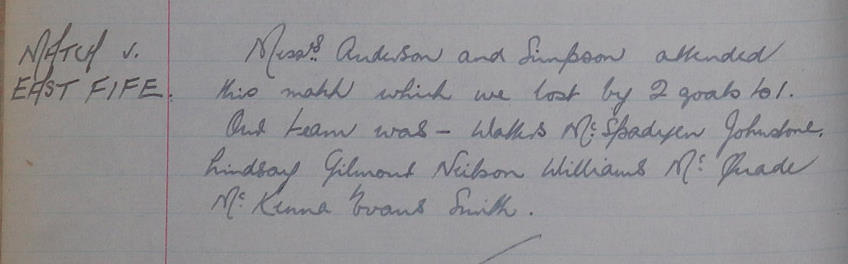 MATCH v.
EAST FIFE.
Messrs. Anderson and Simpson attended
this match which we lost by 2 goals to 1.
Our team was – Watters McSpadyen Johnstone.
Lindsay Gilmour Neilson Williams McQuade
McKenna Evans Smith.